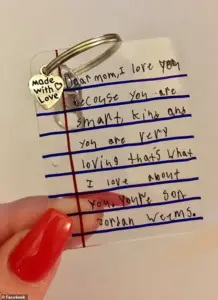 Made
with
Love
Dear mom, I love you
becouse you are
smart, kind and
you are very
loving that's what
I love about
you, you're son
Jordan Weems.
© Facebook